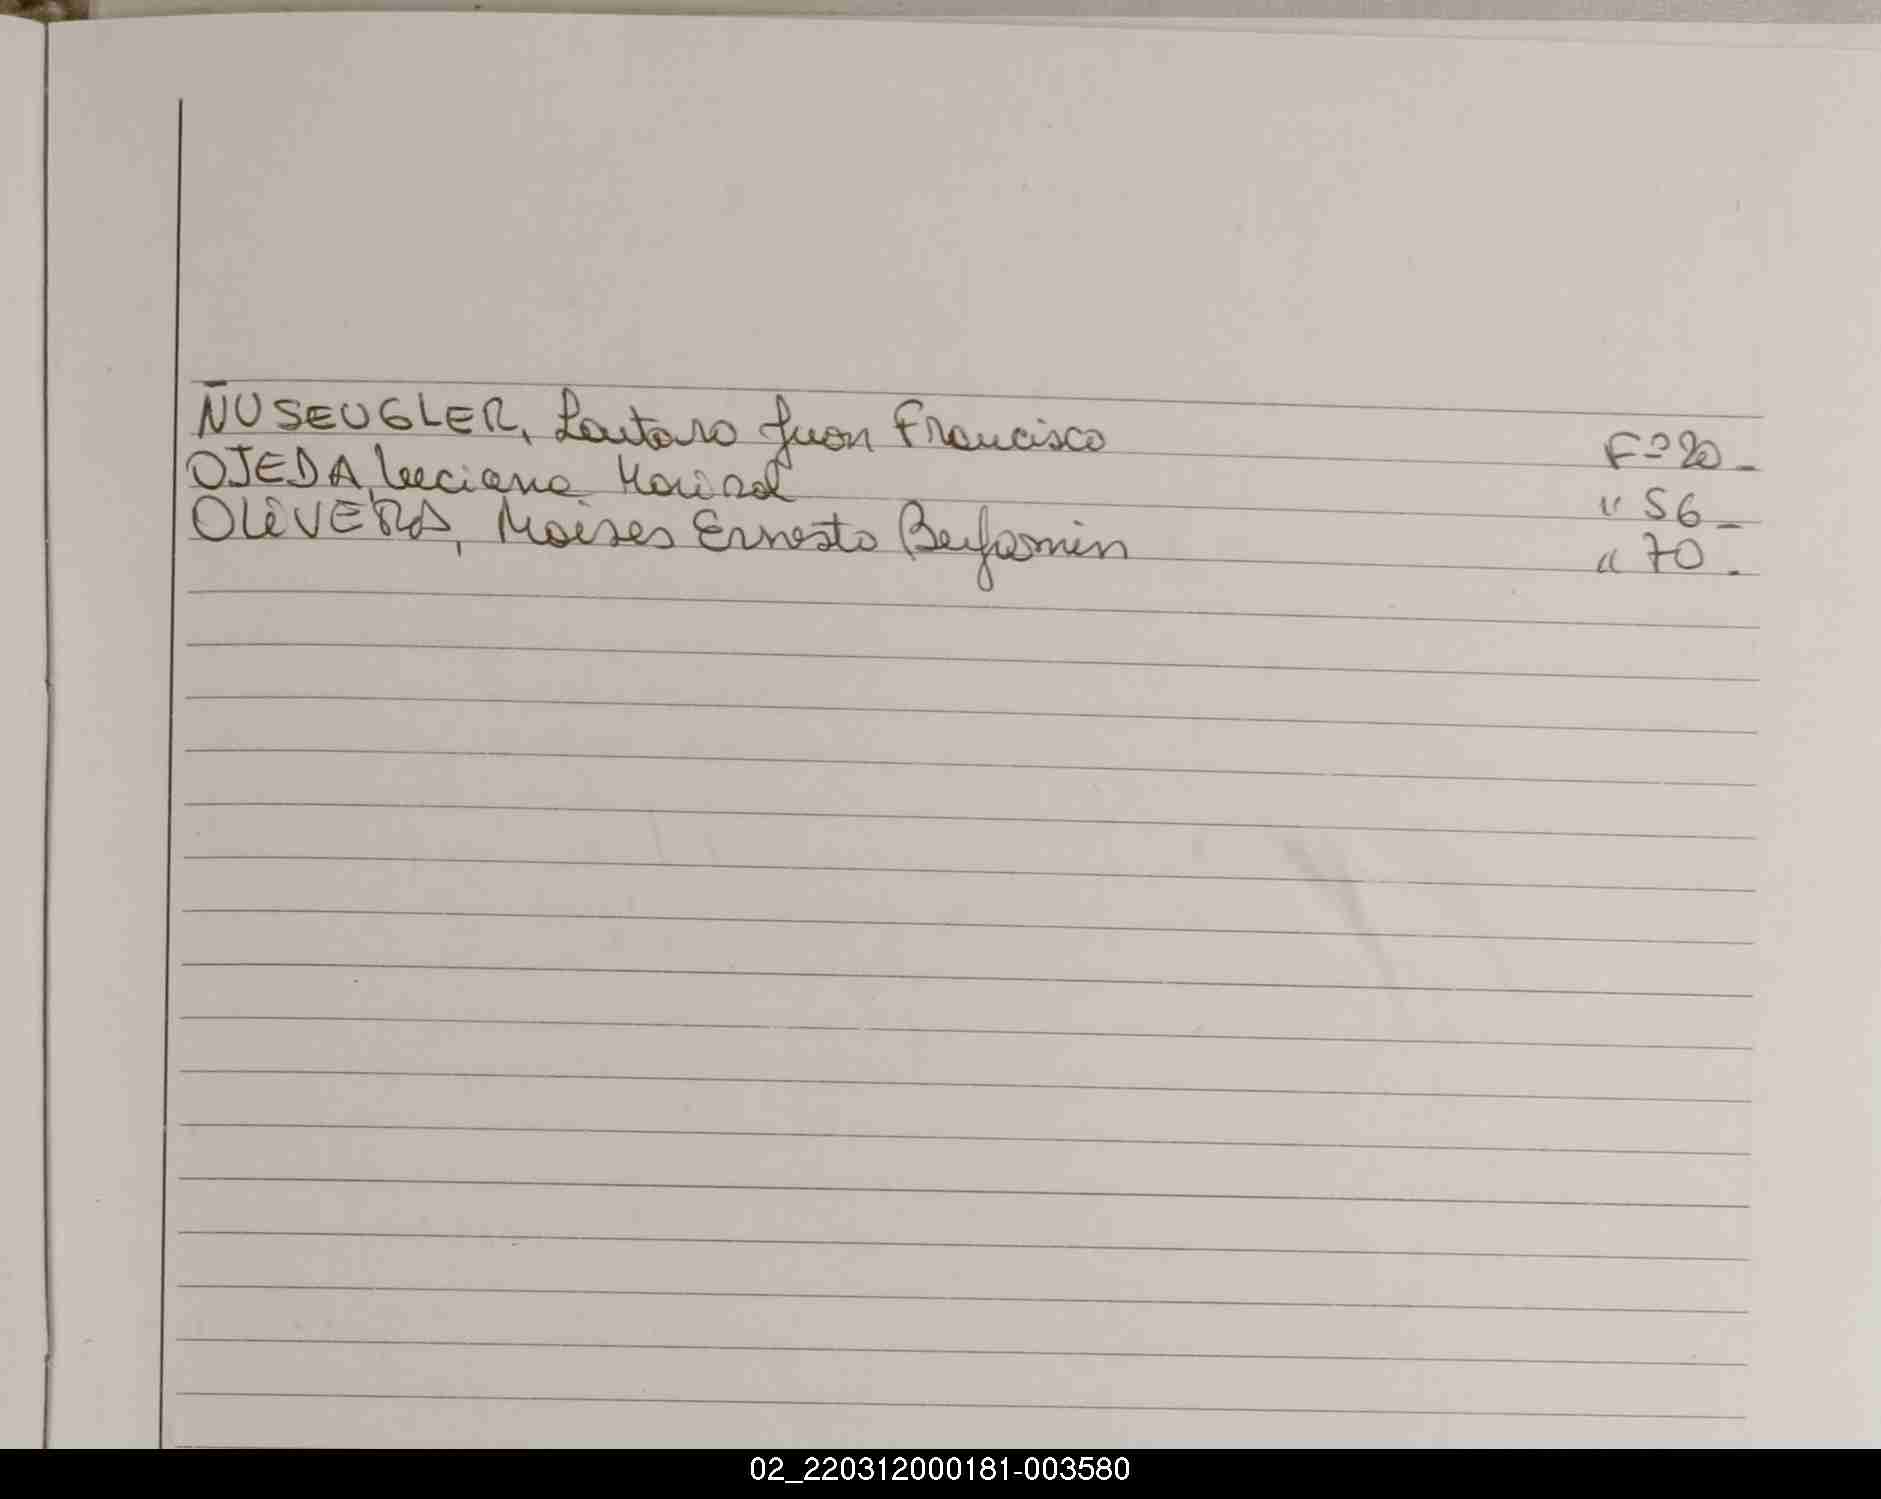 ÑUSEUGLER, Lautaro Juan Francisco Fº 20_
OJEDA, Luciana Marisol " 56_
OLIVERA, Moises Ernesto Benjamin " 70.
02_220312000181-003580